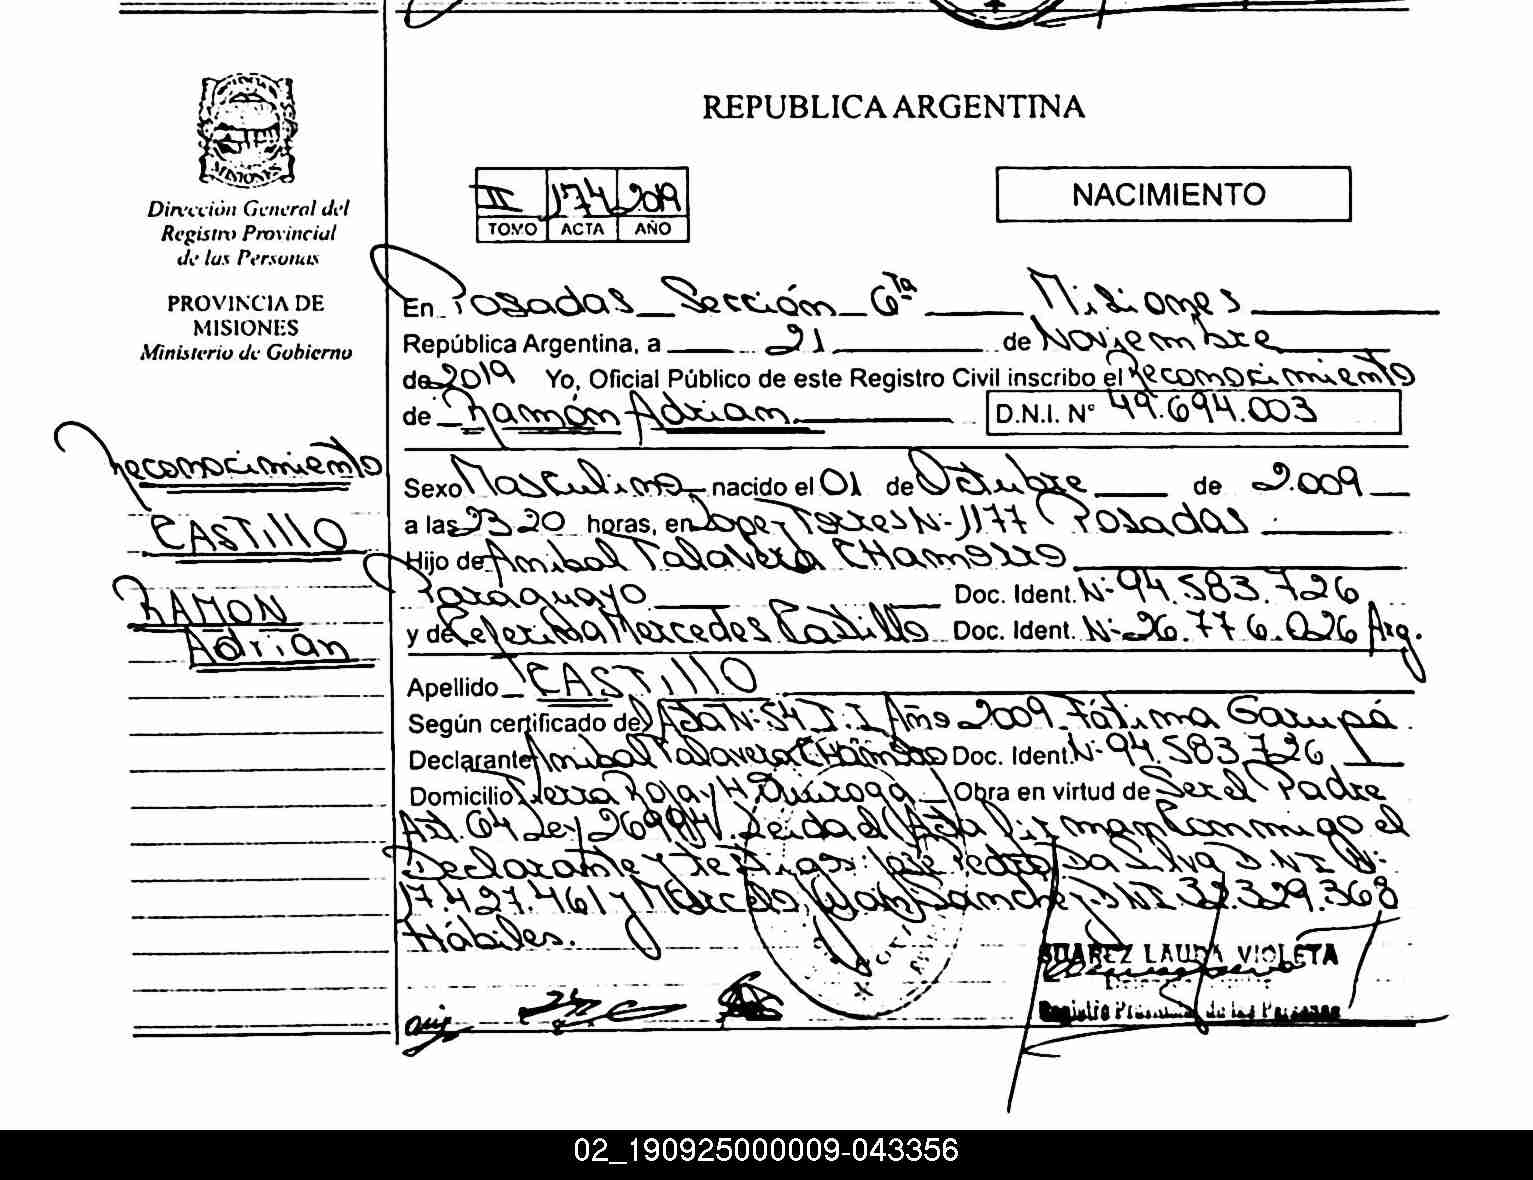 REPUBLICA ARGENTINA
MISIONES
Dirección General del
Registro Provincial
de las Personas
PROVINCIA DE
MISIONES
Ministerio de Gobierno
II 174 2019
TOMO ACTA AÑO
NACIMIENTO
En Posadas Sección 6ta Misiones
República Argentina, a 21 de Noviembre
de 2019 Yo, Oficial Público de este Registro Civil inscribo el Reconocimiento
de Ramón Adrian D.N.I. N° 49.694.003
Reconocimiento
CASTillO
RAMON
Adrian
Sexo Masculino nacido el 01 de Octubre de 2.009
a las 23 20 horas, en Lopez Torres N- 1177 Posadas
Hijo de Anibal Talavera CHamorro
Paraguayo Doc. Ident. N- 94.583.726
y de Ceferina Mercedes Castillo Doc. Ident. N- 26.776.026 Arg.
Apellido CASTillO
Según certificado de Acta N- 54 T. I Año 2009 Fátima Garupá
Declarante Anibal Talavera CHamorro Doc. Ident. N- 94.583.726
Domicilio Tierra Roja y H Quiroga Obra en virtud de Ser el Padre
Art. 64 Ley 26994. Leida el Acta Firman Conmigo el
Declarante y Testigos: Jose Pedro Da Silva D.N.I N-
17.427.461 y Marcelo Juan Sanchez DNI 32.329.368
Hábiles.
SUAREZ LAURA VIOLETA
Registro Provincial de las Personas
02_190925000009-043356